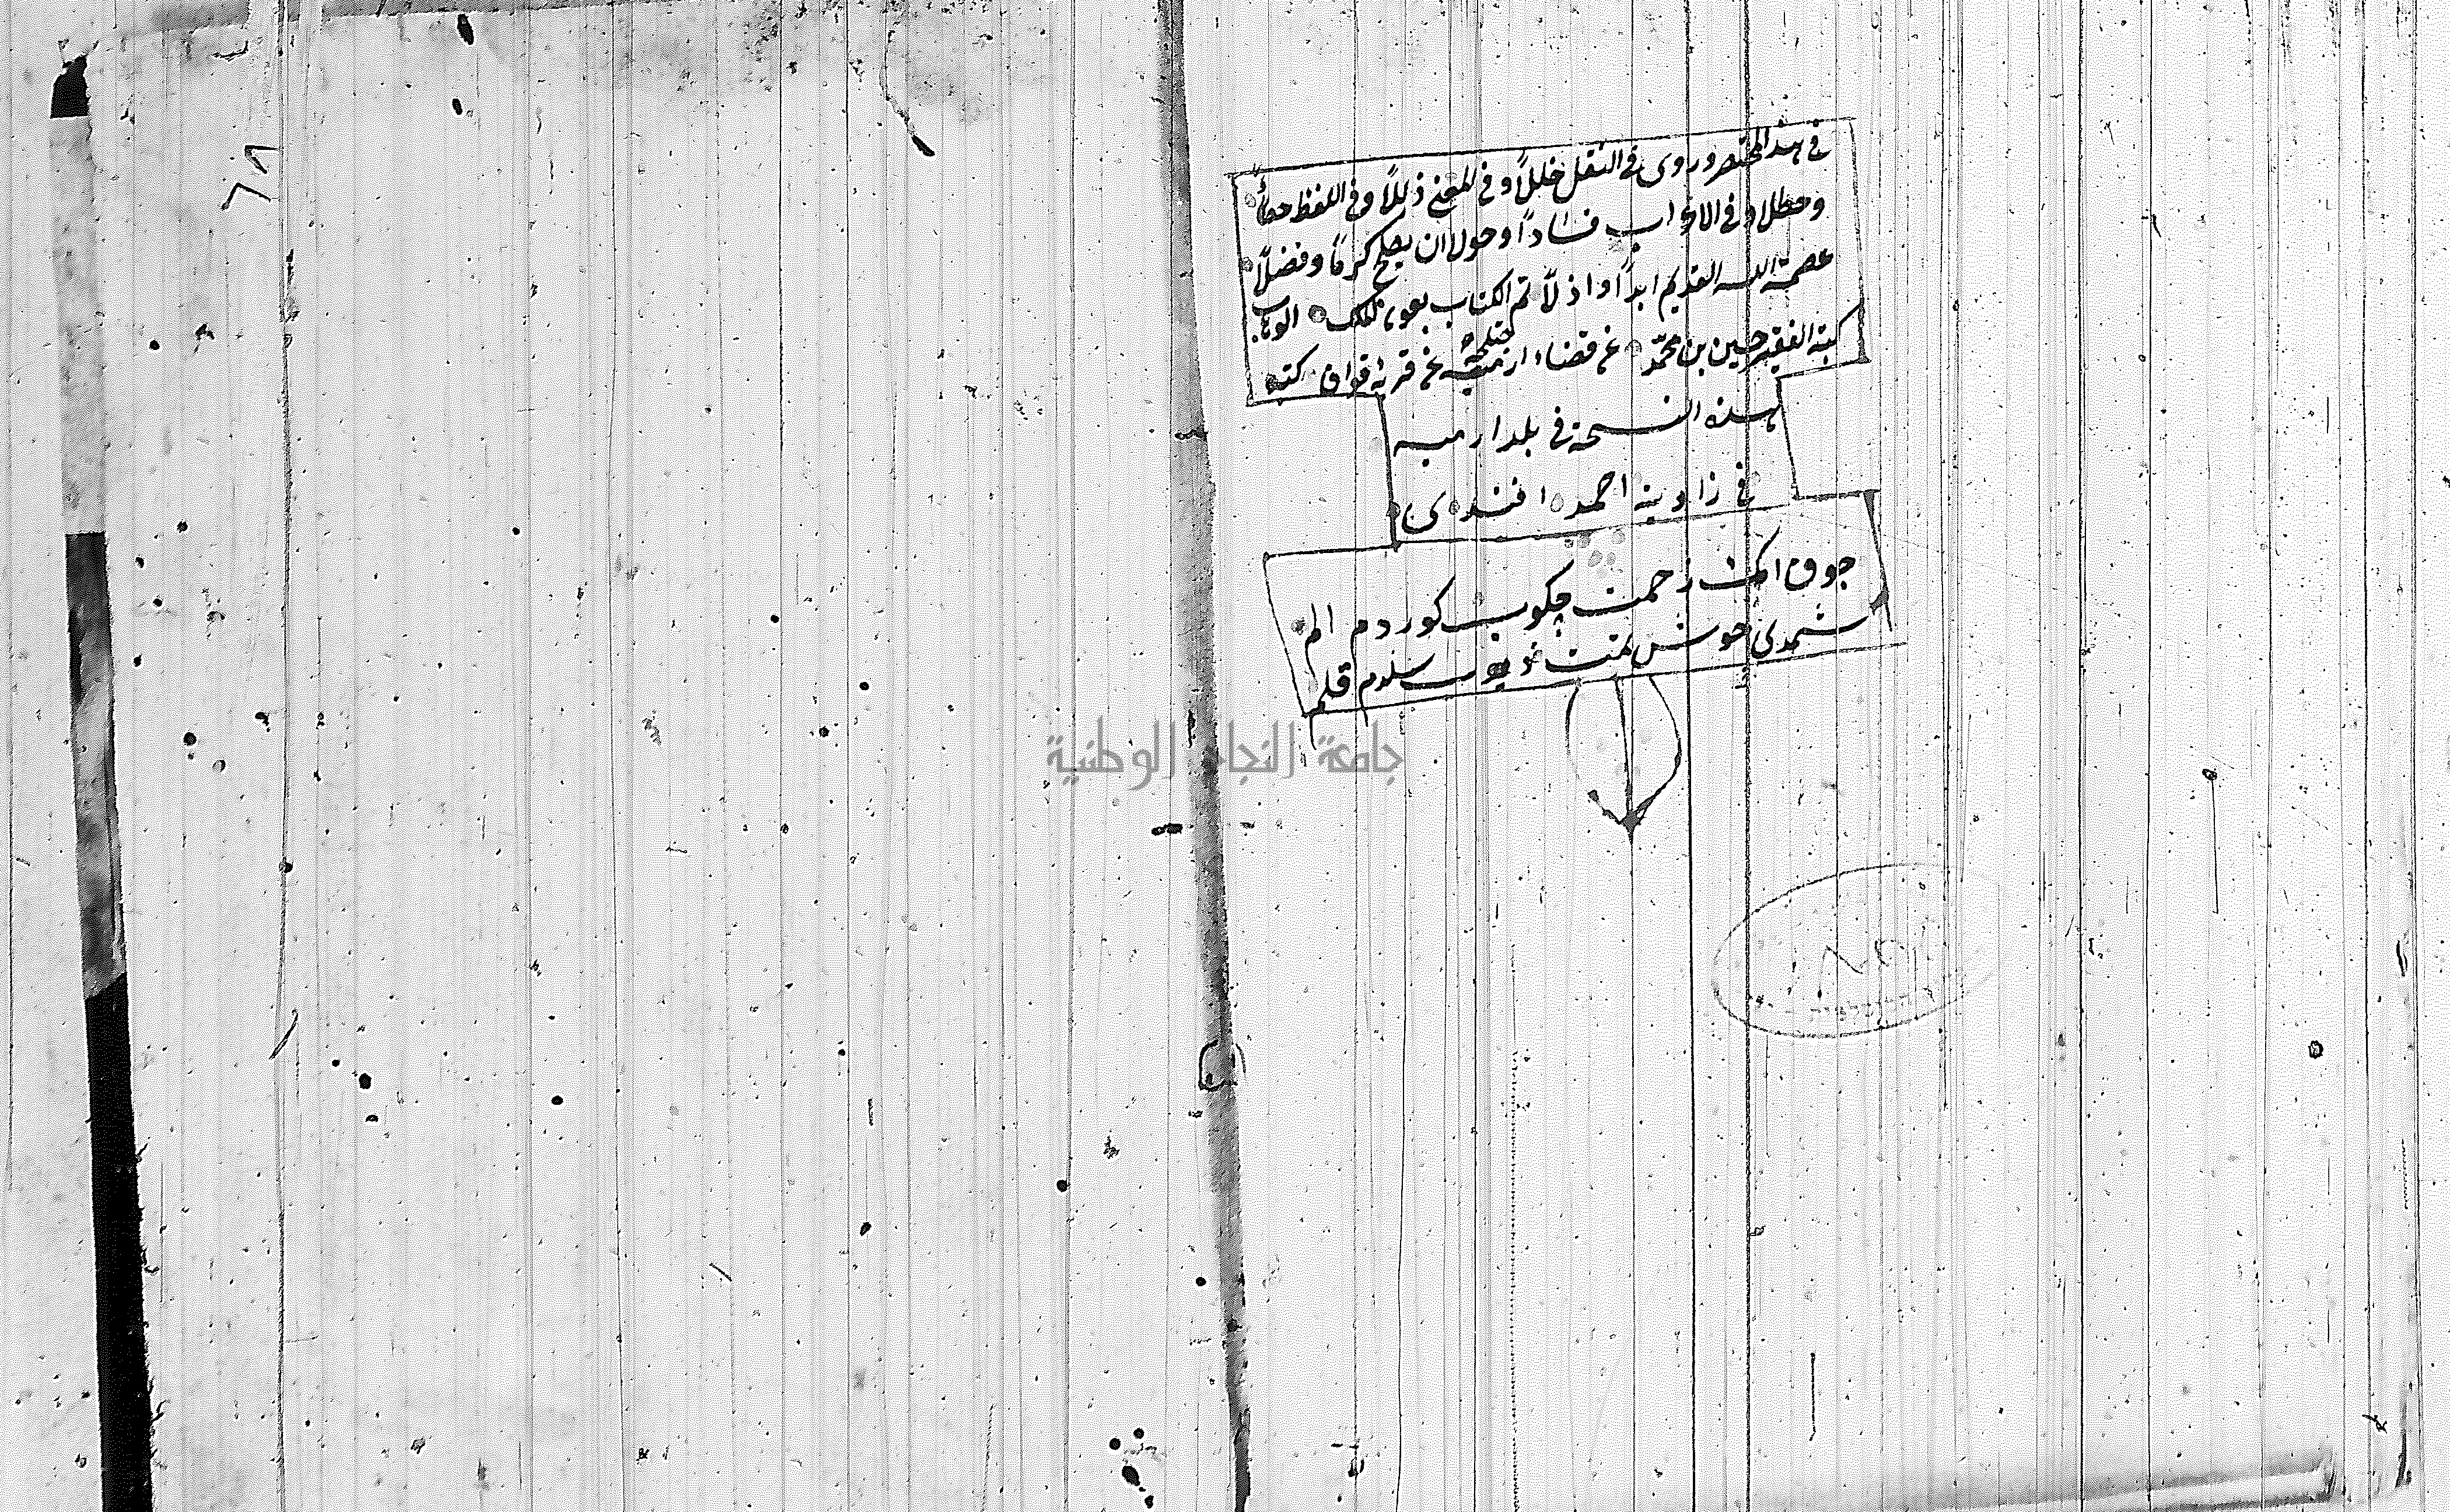 في هذا المختصر وروى في النقل خللاً وفي المعنى ذللاً وفي اللفظ خطأً
وخطلا وفي الاداب فساداً وحول ان يصلح كرماً وفضلاً
عصمة الله القديم ابداً واذلاً تم الكتاب بعون الملك الوهاب
كتبه الفقير حسين بن محمد عن قضاء ارمنية عن قرية كتبه
هذه النسخة في بلد ارميه
في زاوية احمد افندى
جوق امك زحمت جكوب كوردم الم
شمدى خوش سلدم قلم
جامعة النجاح الوطنية